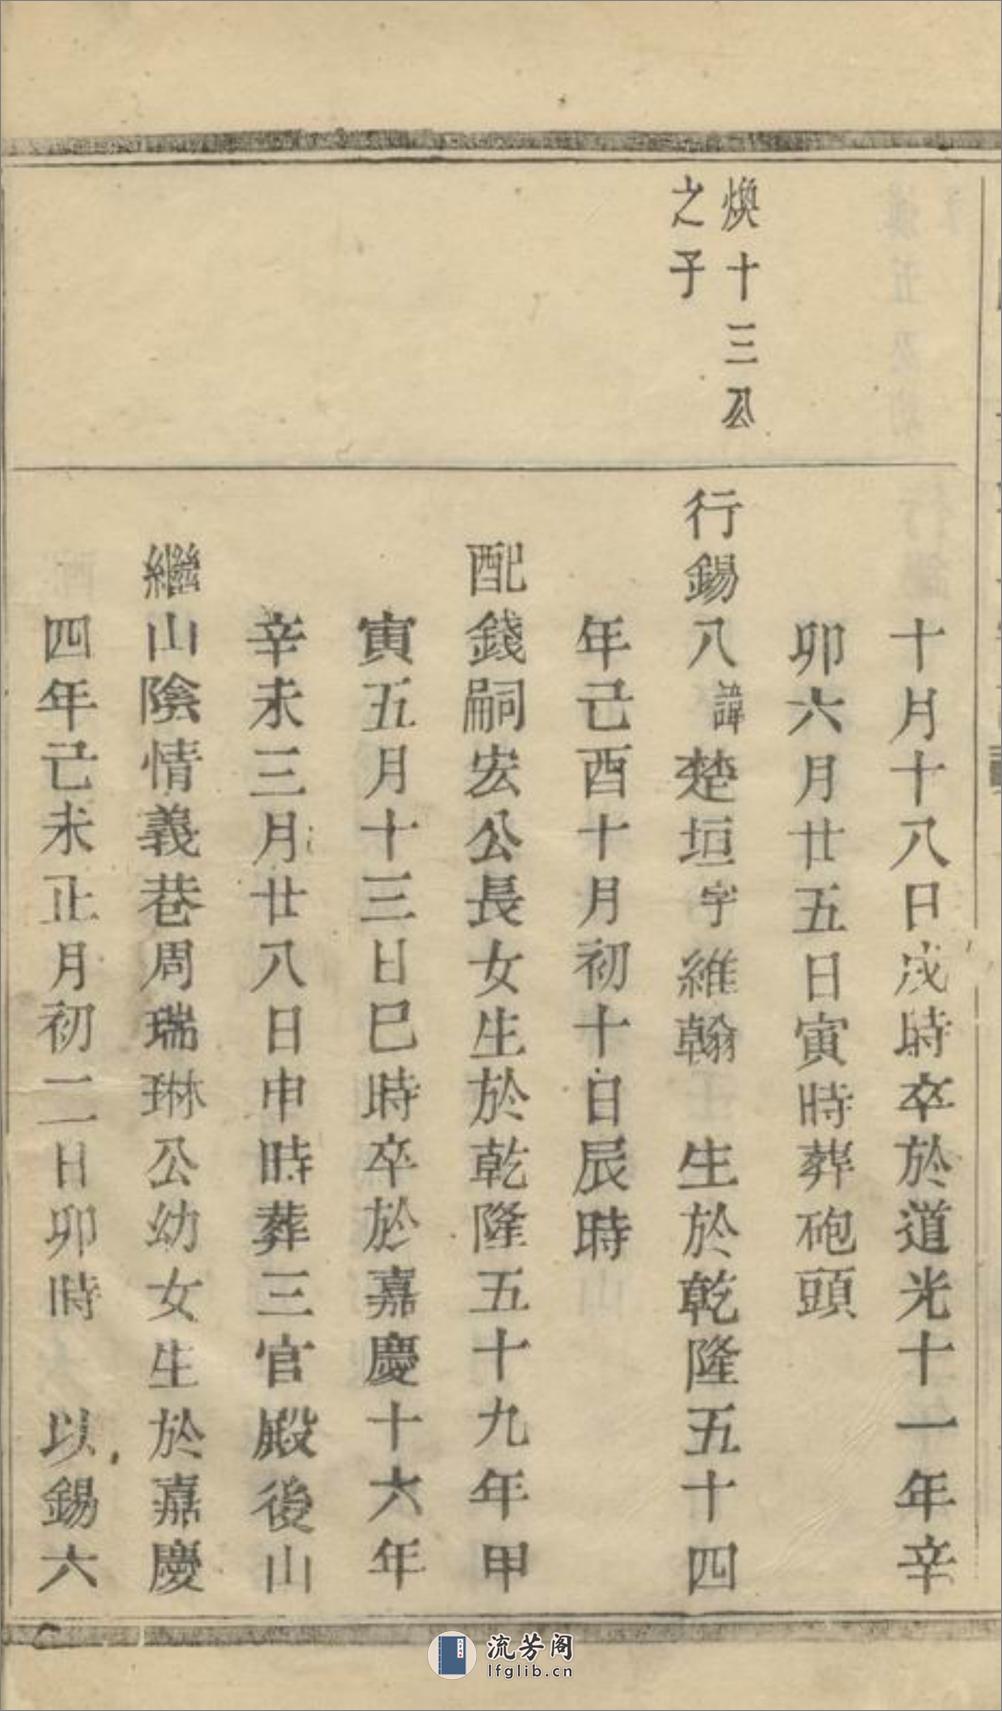 十月十八日戌時卒於道光十一年辛
卯六月廿五日寅時葬砲頭
煥十三公
之子
行錫八諱楚垣字維翰 生於乾隆五十四
年己酉十月初十日辰時
配錢嗣宏公長女生於乾隆五十九年甲
寅五月十三日巳時卒於嘉慶十六年
辛未三月廿八日申時葬三官殿後山
繼山陰情義巷周瑞琳公幼女生於嘉慶
四年己未正月初二日卯時 以錫六
流芳阁
lfglib.cn